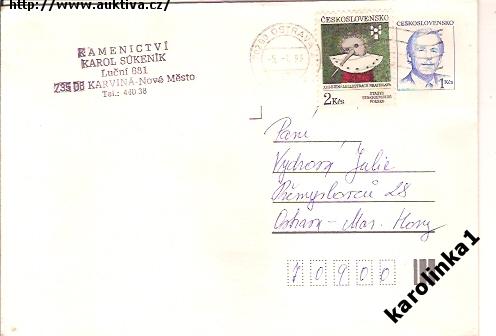 http://www.auktiva.cz/
KAMENICTVÍ
KAROL SÚKENÍK
Luční 681
735 06 KARVINÁ-Nové Město
Tel.: 440 38
OSTRAVA
ČESKOSLOVENSKO
2 Kčs
ČESKOSLOVENSKO
1 Kčs
Paní
Vydrová Julie
Přemyslovců 28
Ostrava-Mar. Hory
70900
karolinka1